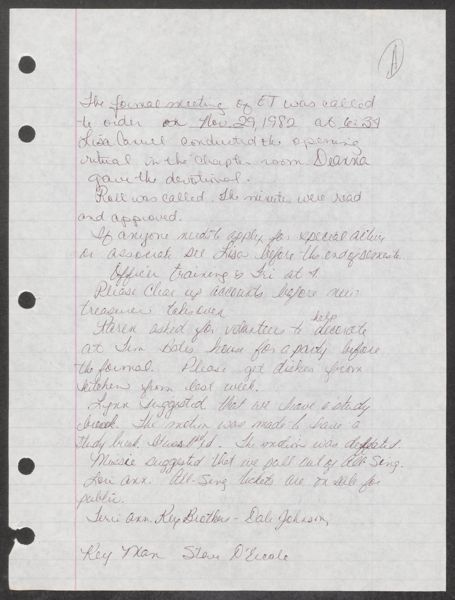 1
The formal meeting of ET was called
to order on Nov. 29, 1982 at 6:34
Lisa conducted the opening
ritual in the Chapter room Deanna
gave the devotional.
Roll was called. The minutes were read
and approved.
If anyone needs to apply for special active
or associate see Lisa before the end of semester.
Officer training is Fri at 1.
Please clear up accounts before new
treasurer takes over
Karen asked for volunteers to help decorate
at Tim house for a party before
the formal. Please get dishes from
kitchen from last week.
Lynn suggested that we have a study
break. The motion was made to have a
study break. The motion was defeated
Missie suggested that we pull out of All-Sing.
Lori Ann. All-Sing tickets are on sale for
public.
Terri Ann. Key Brothers - Dale Johnson,
Key Man Steve D'Ercole